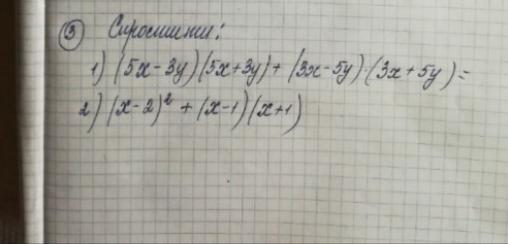 ③ Спростити:
1) (5x-3y)(5x+3y)+(3x-5y)·(3x+5y)=
2) (x-2)² + (x-1)(x+1)